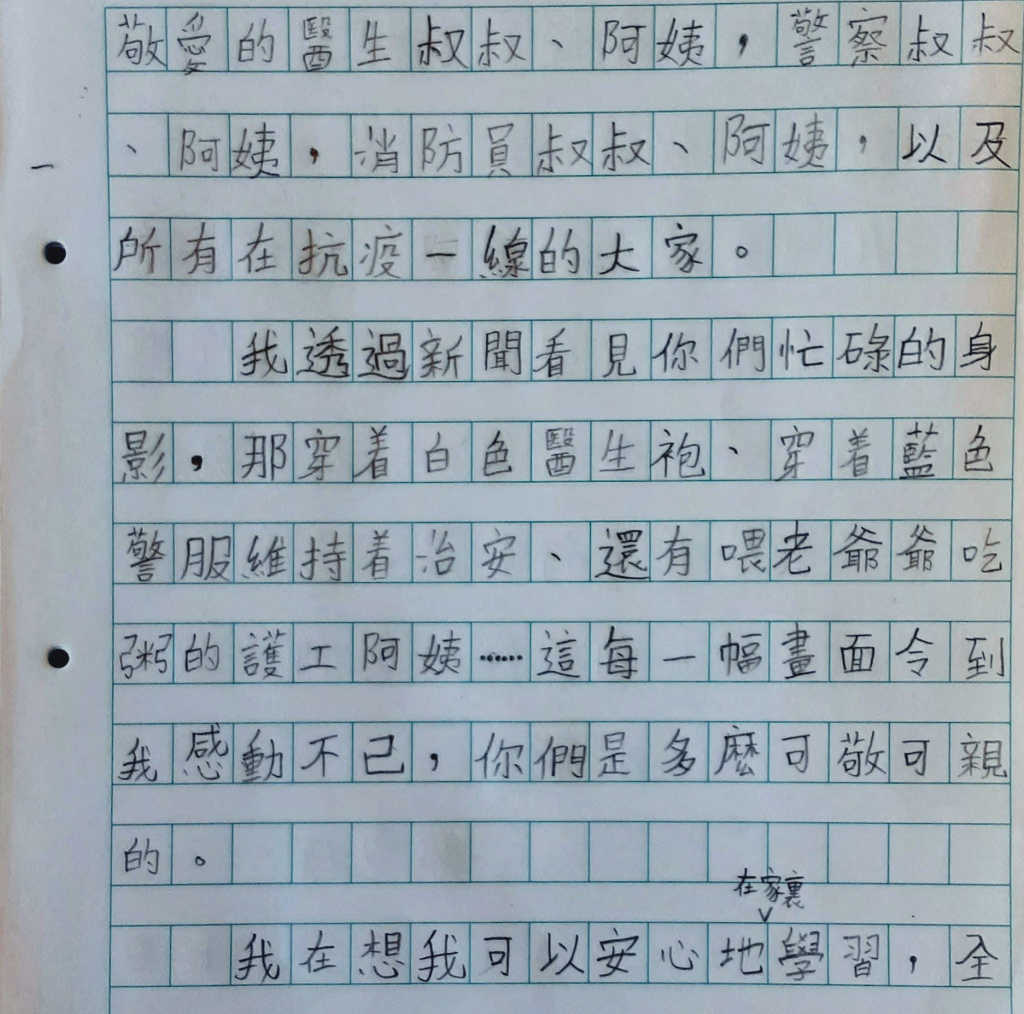 敬愛的醫生叔叔、阿姨，警察叔叔
、阿姨，消防員叔叔、阿姨，以及
所有在抗疫一線的大家。
我透過新聞看見你們忙碌的身
影，那穿着白色醫生袍、穿着藍色
警服維持着治安、還有喂老爺爺吃
粥的護工阿姨……這每一幅畫面令到
我感動不已，你們是多麽可敬可親
的。
在家裏
我在想我可以安心地學習，全